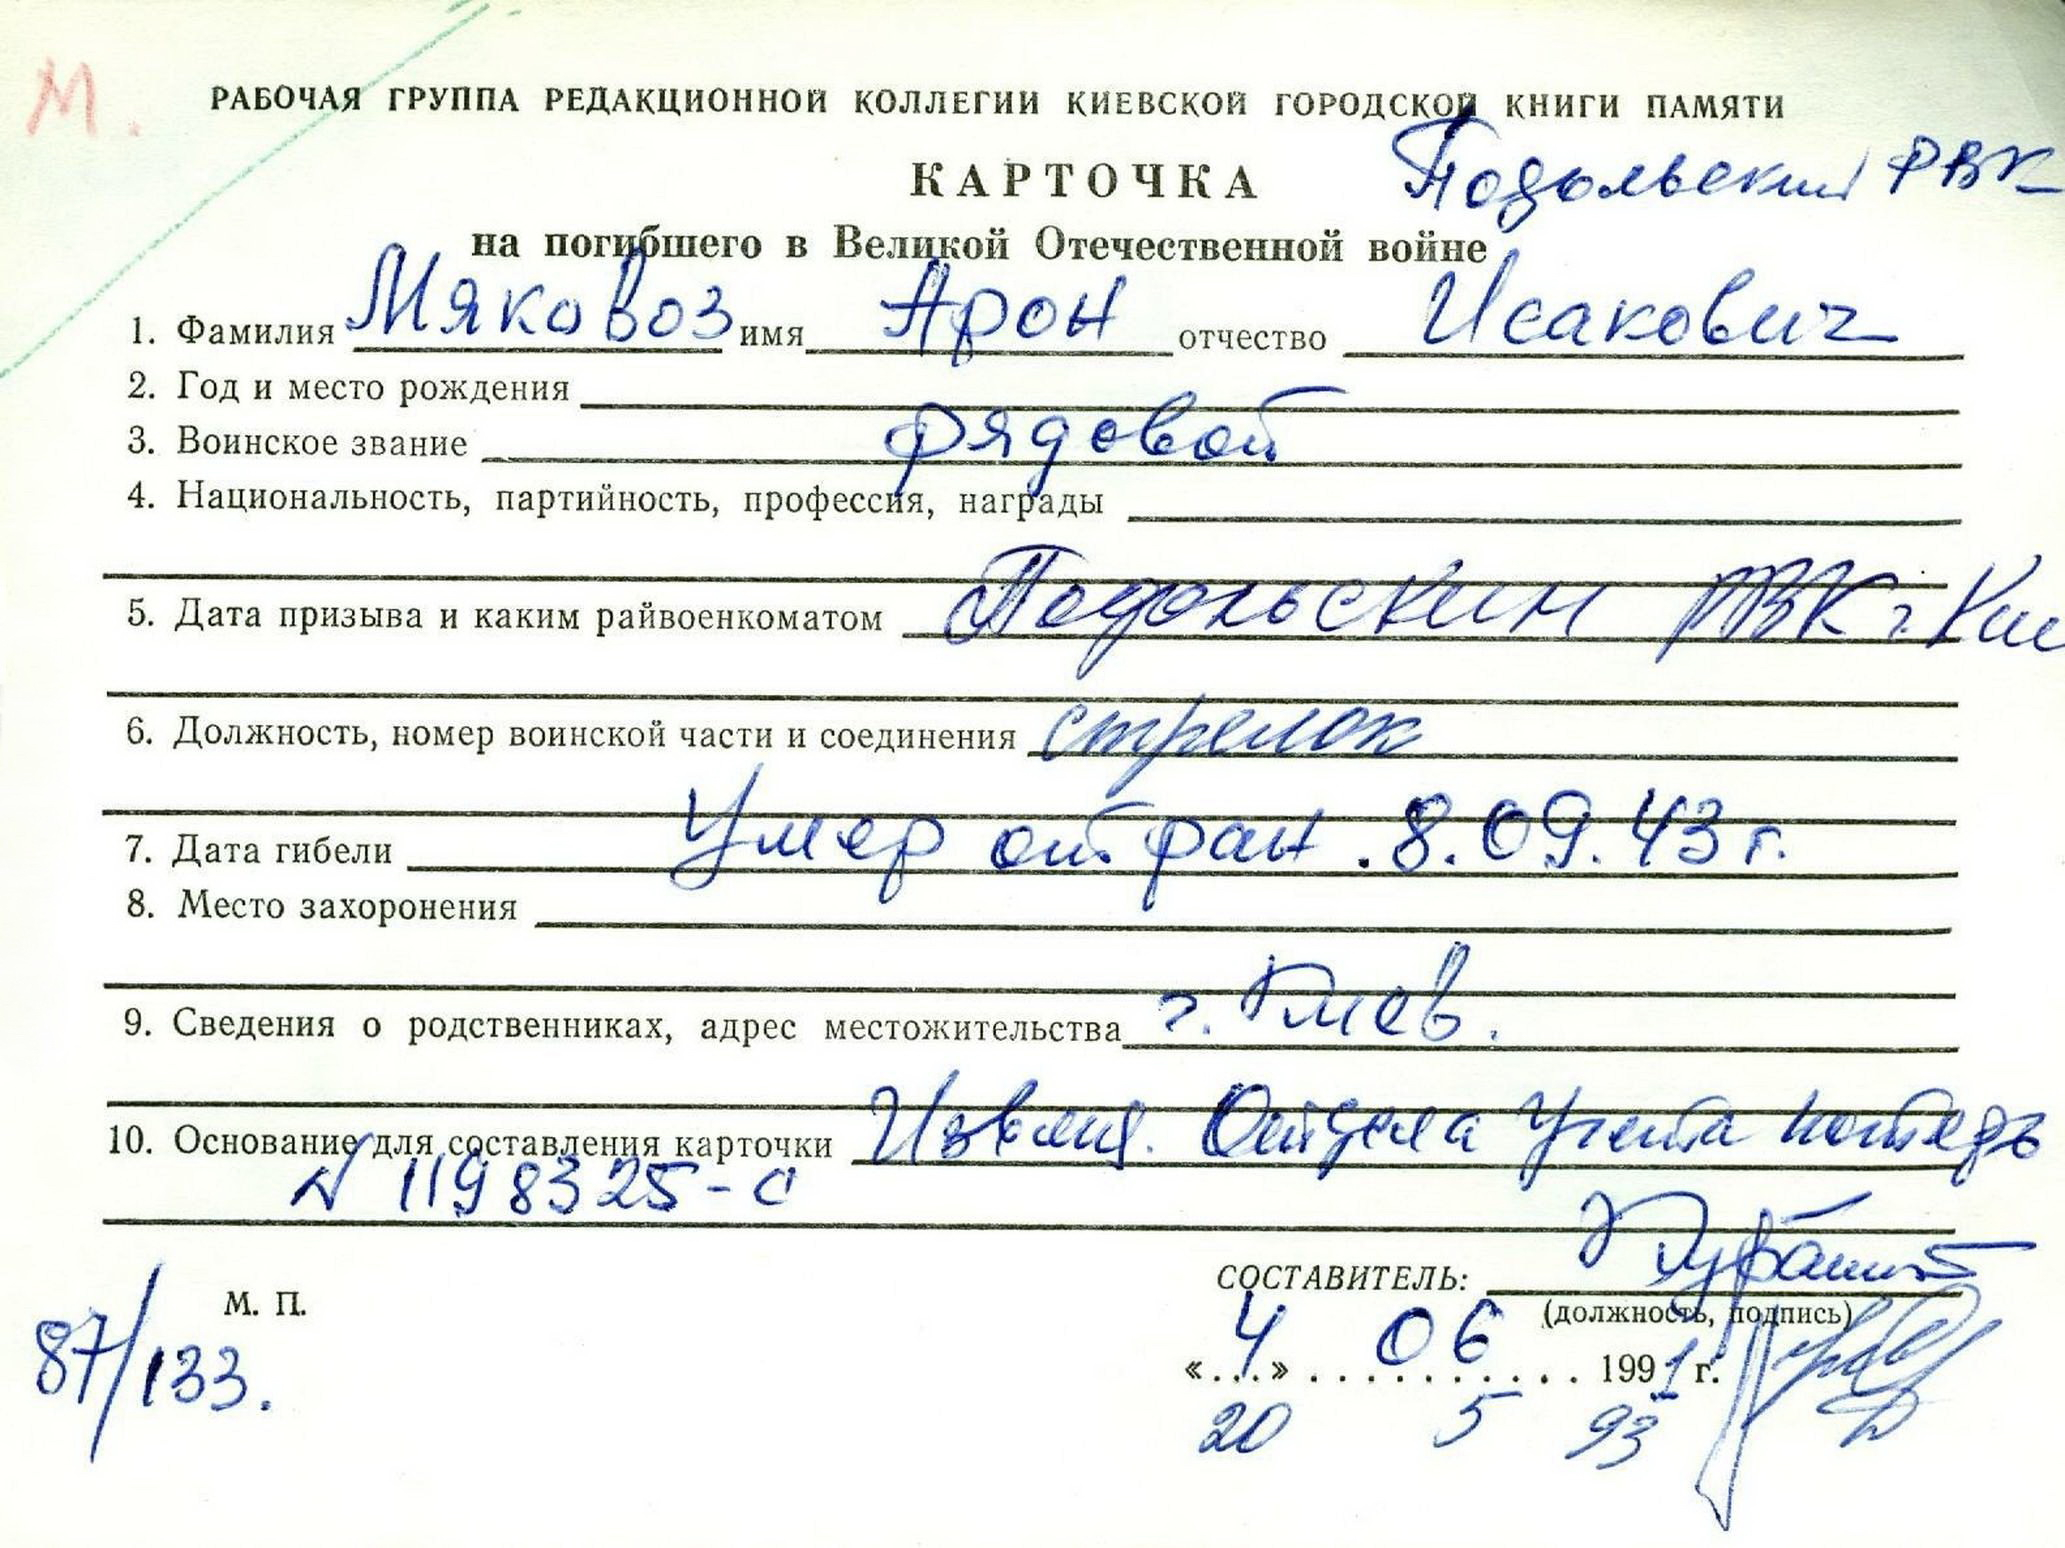 М.
РАБОЧАЯ ГРУППА РЕДАКЦИОННОЙ КОЛЛЕГИИ КИЕВСКОЙ ГОРОДСКОЙ КНИГИ ПАМЯТИ
КАРТОЧКА Подольский РВК
на погибшего в Великой Отечественной войне
1. Фамилия Мяковоз имя Арон отчество Исакович
2. Год и место рождения
3. Воинское звание рядовой
4. Национальность, партийность, профессия, награды
5. Дата призыва и каким райвоенкоматом Подольским РВК г. Кие
6. Должность, номер воинской части и соединения стрелок
7. Дата гибели Умер от ран. 8.09.43 г.
8. Место захоронения
9. Сведения о родственниках, адрес местожительства г. Киев.
10. Основание для составления карточки Извещ. Отдела Учета потерь
N 1198325-с
СОСТАВИТЕЛЬ:
М. П. (должность, подпись)
87/133. «4» 06 1991 г.
20 5 93